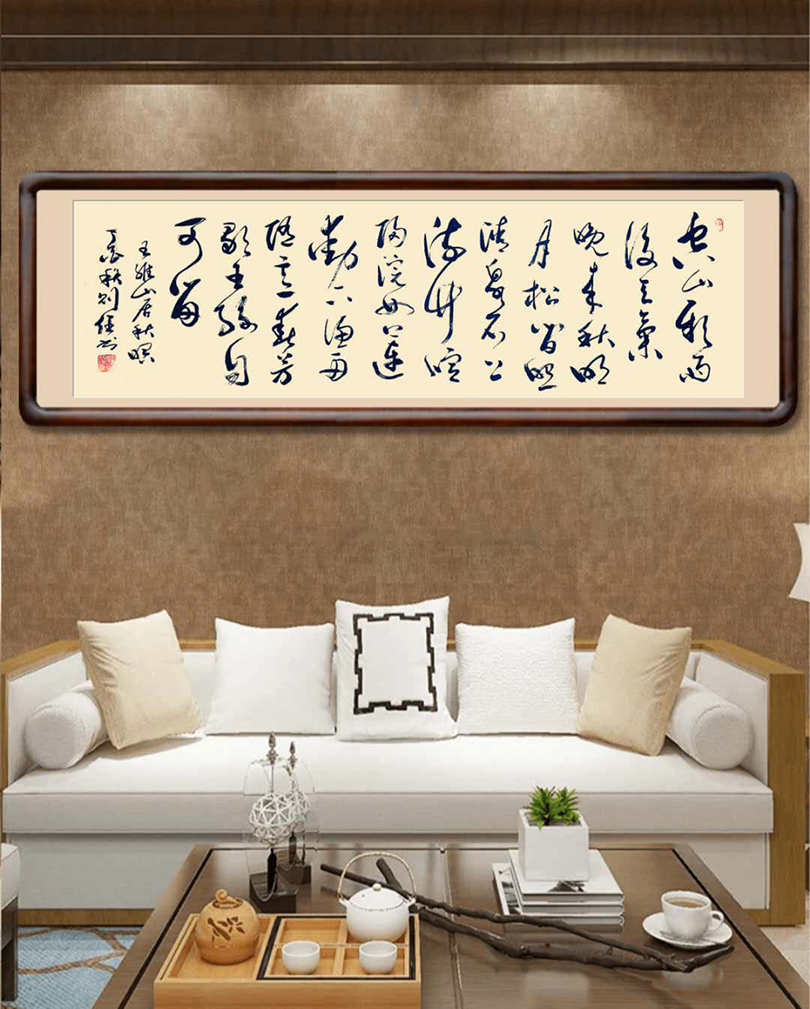 空山新雨
後天氣
晚来秋明
月松间照
清泉石上
流竹喧
归浣女莲
动下渔舟
随意春芳
歇王孙自
可留
王维山居秋暝
秋刘